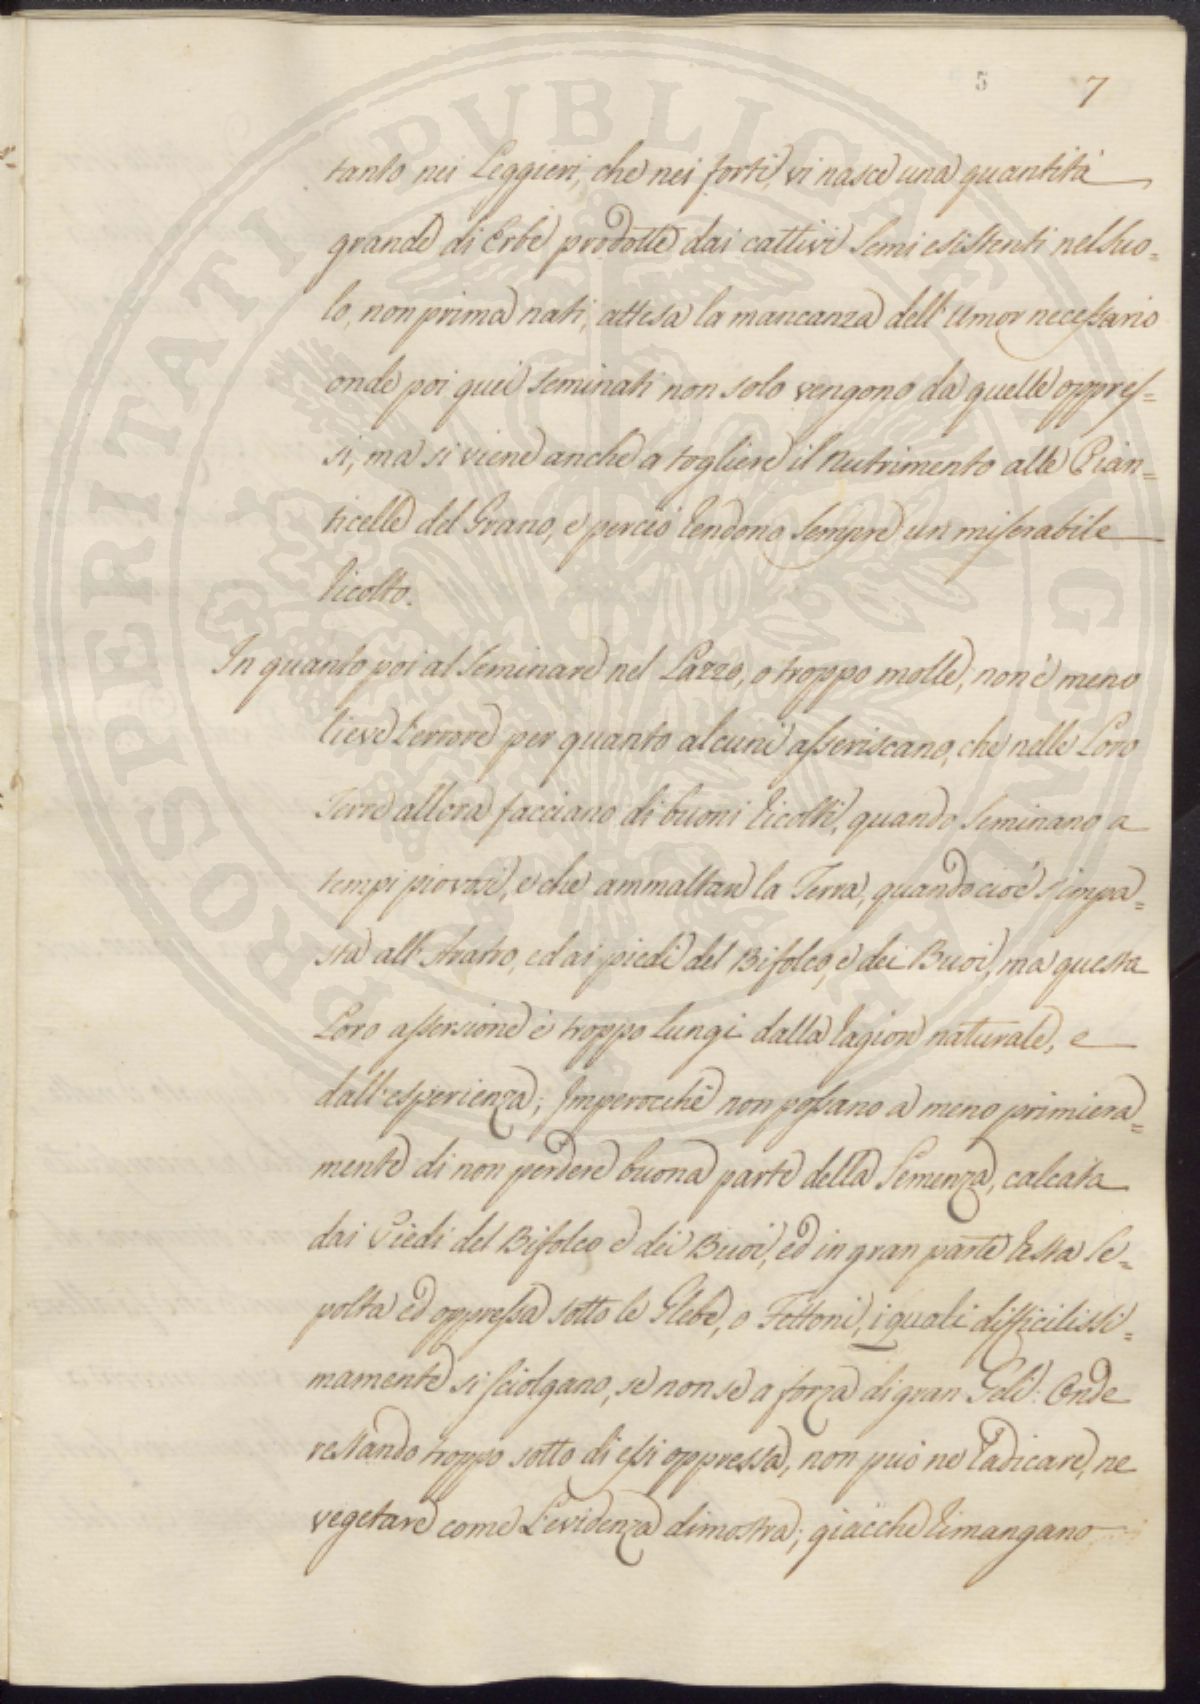 5 7
tanto nei Leggieri, che nei forti, vi nasce una quantità
grande di Erbe prodotte dai cattivi Semi esistenti nel Suo=
lo, non prima nati, attesa la mancanza dell'Umor necessario
onde poi quei Seminati non solo vengono da quelle oppres=
si, ma si viene anche a togliere il Nutrimento alle Pian=
ticelle del Grano, e perciò rendono sempre un miserabile
ricolto.
In quanto poi al Seminare nel Pazzo, o troppo molle, non è meno
lieve l'errore per quanto alcuni asseriscano, che nelle Loro
Terre allora facciano di buoni ricolti, quando Seminano a
tempi piovosi, e che ammaltare la Terra, quando cioè s'impa=
sta all'Aratro, ed ai piedi del Bifolco, e dei Buoi, ma questa
Loro assersione è troppo Lungi dalla ragion naturale, e
dall'esperienza; Imperocchè non possano a meno primiera=
mente di non perdere buona parte della Semenza, calcata
dai Piedi del Bifolco e dei Buoi, ed in gran parte resta Se=
polta ed oppressa sotto le Glebe, o Fettoni, i quali difficilissi=
mamente si sciolgano, se non se a forza di gran Geli: Onde
restando troppo sotto di essi oppressa, non può ne radicare, ne
vegetare come l'evidenza dimostra; giacche rimangano
PROSPERITATI PUBLICAE AUGENDAE